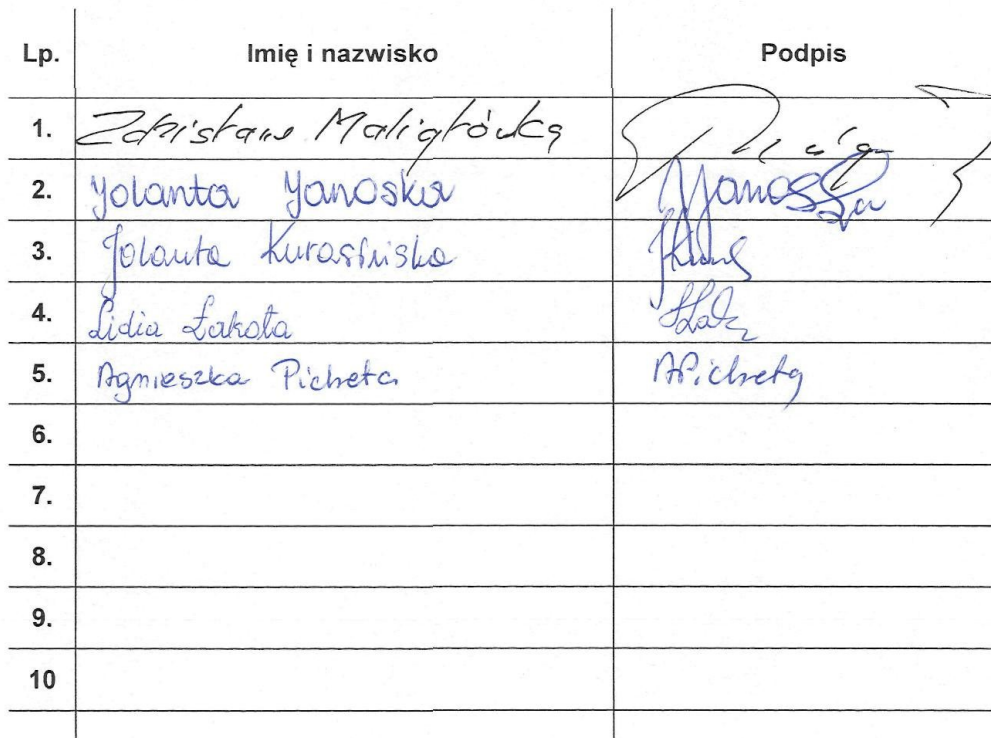 Lp. Imię i nazwisko Podpis
1. Zdzisław Maligłówka
2. Jolanta Janoska Janoska
3. Jolanta Kurasińska
4. Lidia Łakota
5. Agnieszka Picheta APicheta
6.
7.
8.
9.
10